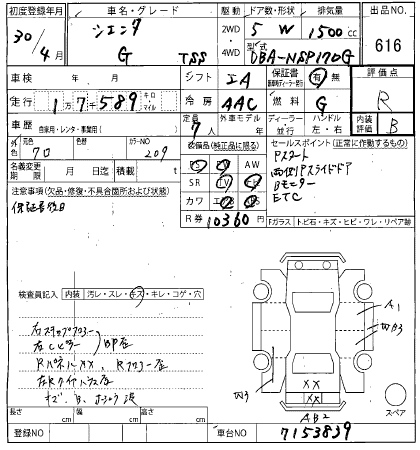 初度登録年月 車名・グレード 駆動 ドア数・形状 排気量 出品NO.
30/4月 シエンタ G TSS 2WD 4WD 5 W 1500cc 616
型式 DBA-NSP170G
車検 年 月 シフト IA 保証書 有 無 評価点
走行 1万7千589 キロ マイル 冷房 AAC 燃料 G R
車歴 自家用・レンタ・事業用( ) 定員 7人 外車モデル 年 ディーラー 並行 ハンドル 左・右 内装評価 B
外色 元色 70 色替 カラーNO 209
装備品(純正品に限る) セールスポイント(正常に作動するもの)
名義変更期限 月 日迄 積載 t
PS PW AW
SR TV
カワ エアB
R券 10360円
Pスタート
両側Pスライドドア
Bモニター
ETC
注意事項(欠品・修復・不具合箇所および状態)
保証書後日
Fガラス トビ石・キズ・ヒビ・ワレ・リペア跡
検査員記入 内装 汚レ・スレ・キズ・キレ・コゲ・穴
右ステップアウター
右Cピラー BP歪
RパネルXX、Rフロアー歪
左Rタイヤハウス歪
キズ、B
A1
XX
XX
AB2
スペア
長さ cm 幅 cm 高さ cm
登録NO 車台NO 7153839